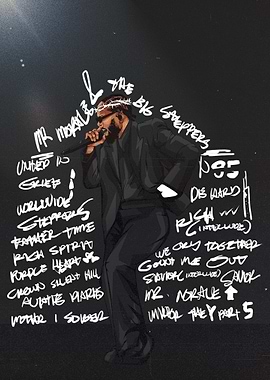 MR. MORALE & THE BIG STEPPERS
UNITED IN
GRIEF
WORLDWIDE
STEPPERS
FATHER TIME
RICH SPIRIT
PURPLE HEARTS
CROWN SILENT HILL
AUNTIE DIARIES
MOTHER I SOBER
DIE HARD
RICH
(INTERLUDE)
WE CRY TOGETHER
COUNT ME OUT
SAVIOR (INTERLUDE) SAVIOR
MR. MORALE
THE PART 5